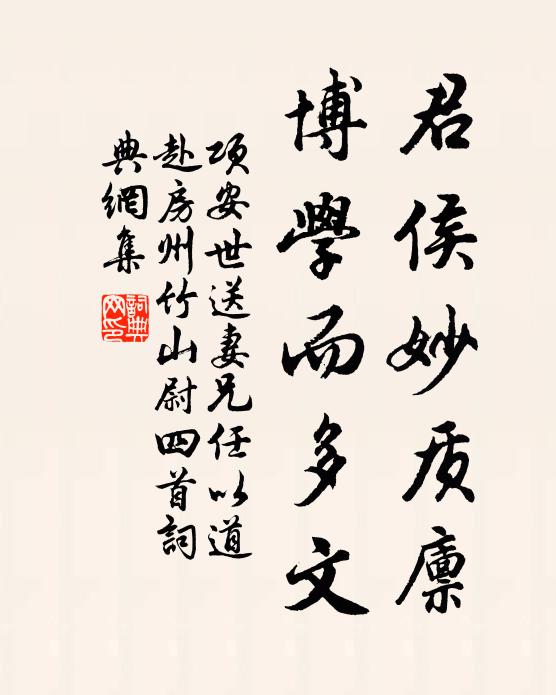 君侯妙质廪
博學而多文
项安世送妻兄任以道
赴房州竹山尉四首詞
典網集
詞典网印